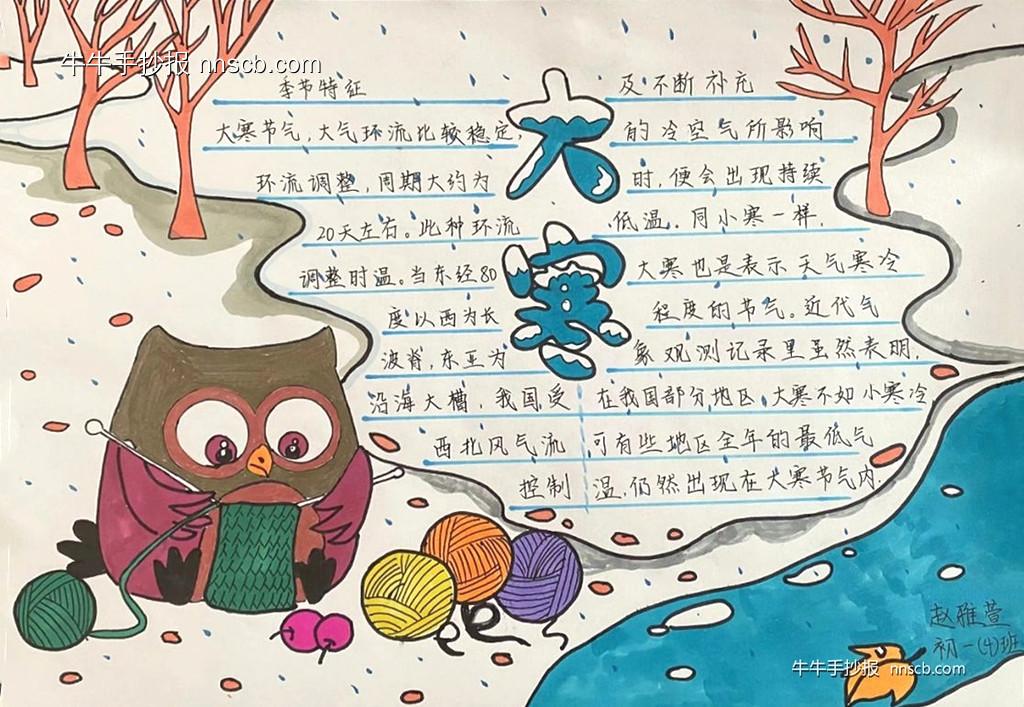 牛牛手抄报 nnscb.com
大寒
季节特征
大寒节气,大气环流比较稳定,
环流调整,周期大约为
20天左右。此种环流
调整时温。当东经80
度以西为长
波脊,东亚为
沿海大槽,我国受
西北风气流
控制
及不断补充
的冷空气所影响
时,便会出现持续
低温.同小寒一样,
大寒也是表示天气寒冷
程度的节气。近代气
象观测记录里虽然表明,
在我国部分地区,大寒不如小寒冷,
可有些地区全年的最低气
温,仍然出现在大寒节气内.
赵雅萱
初一(4)班
牛牛手抄报 nnscb.com